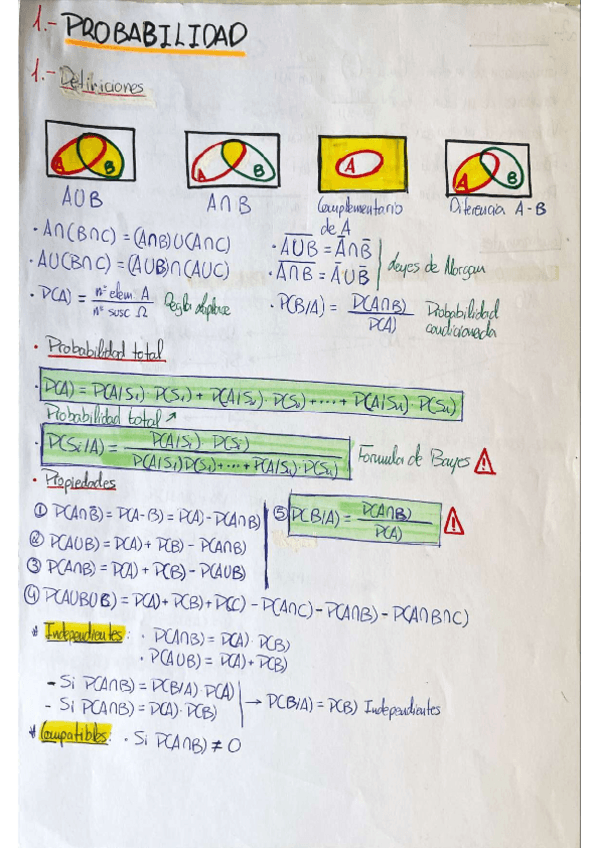 1.- PROBABILIDAD
1.- Definiciones
A B
A B
A
A B
A∪B
A∩B
Complementario de A
Diferencia A-B
· A∩(B∩C) = (A∩B)∪(A∩C)
· A∪(B∩C) = (A∪B)∩(A∪C)
· P(A) = nº elem. A / nº susc Ω Regla laplace
· A̅∪̅B̅ = A̅∩B̅
· A̅∩̅B̅ = A̅∪B̅
Leyes de Morgan
· P(B/A) = P(A∩B) / P(A) Probabilidad condicionada
· Probabilidad total
· P(A) = P(A/S₁)· P(S₁) + P(A/S₂)· P(S₂) +····+ P(A/Sₙ)· P(Sₙ)
Probabilidad total ↗
· P(Sᵢ/A) = P(A/Sᵢ)· P(Sᵢ) / P(A/S₁)P(S₁)+···+ P(A/Sₙ)·P(Sₙ) Formula de Bayes ⚠
· Propiedades
① P(A∩B̅) = P(A-B) = P(A)-P(A∩B)
② P(A∪B) = P(A)+ P(B) - P(A∩B)
③ P(A∩B) = P(A) + P(B) - P(A∪B)
⑤ P(B/A) = P(A∩B) / P(A) ⚠
④ P(A∪B∪B) = P(A)+ P(B)+ P(C) - P(A∩C)- P(A∩B)- P(A∩B∩C)
* Independientes: · P(A∩B) = P(A)· P(B)
· P(A∪B) = P(A)+ P(B)
- Si P(A∩B) = P(B/A)· P(A)
- Si P(A∩B) = P(A)· P(B)
→ P(B/A) = P(B) Independientes
* Compatibles: · Si P(A∩B) ≠ 0